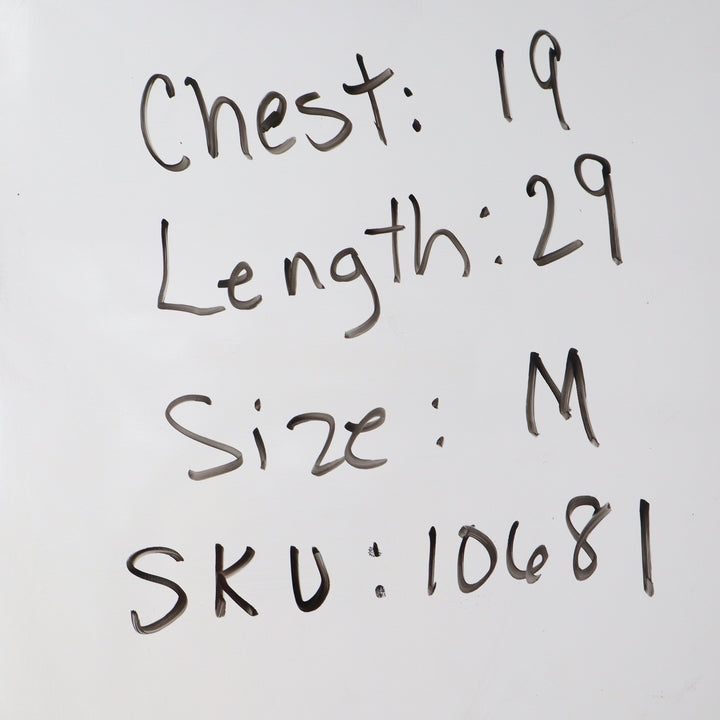 Chest: 19
Length: 29
Size: M
SKU: 10681